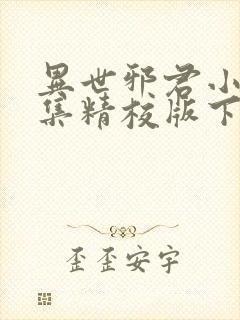 異世邪君小
集精校版下
歪歪安宇